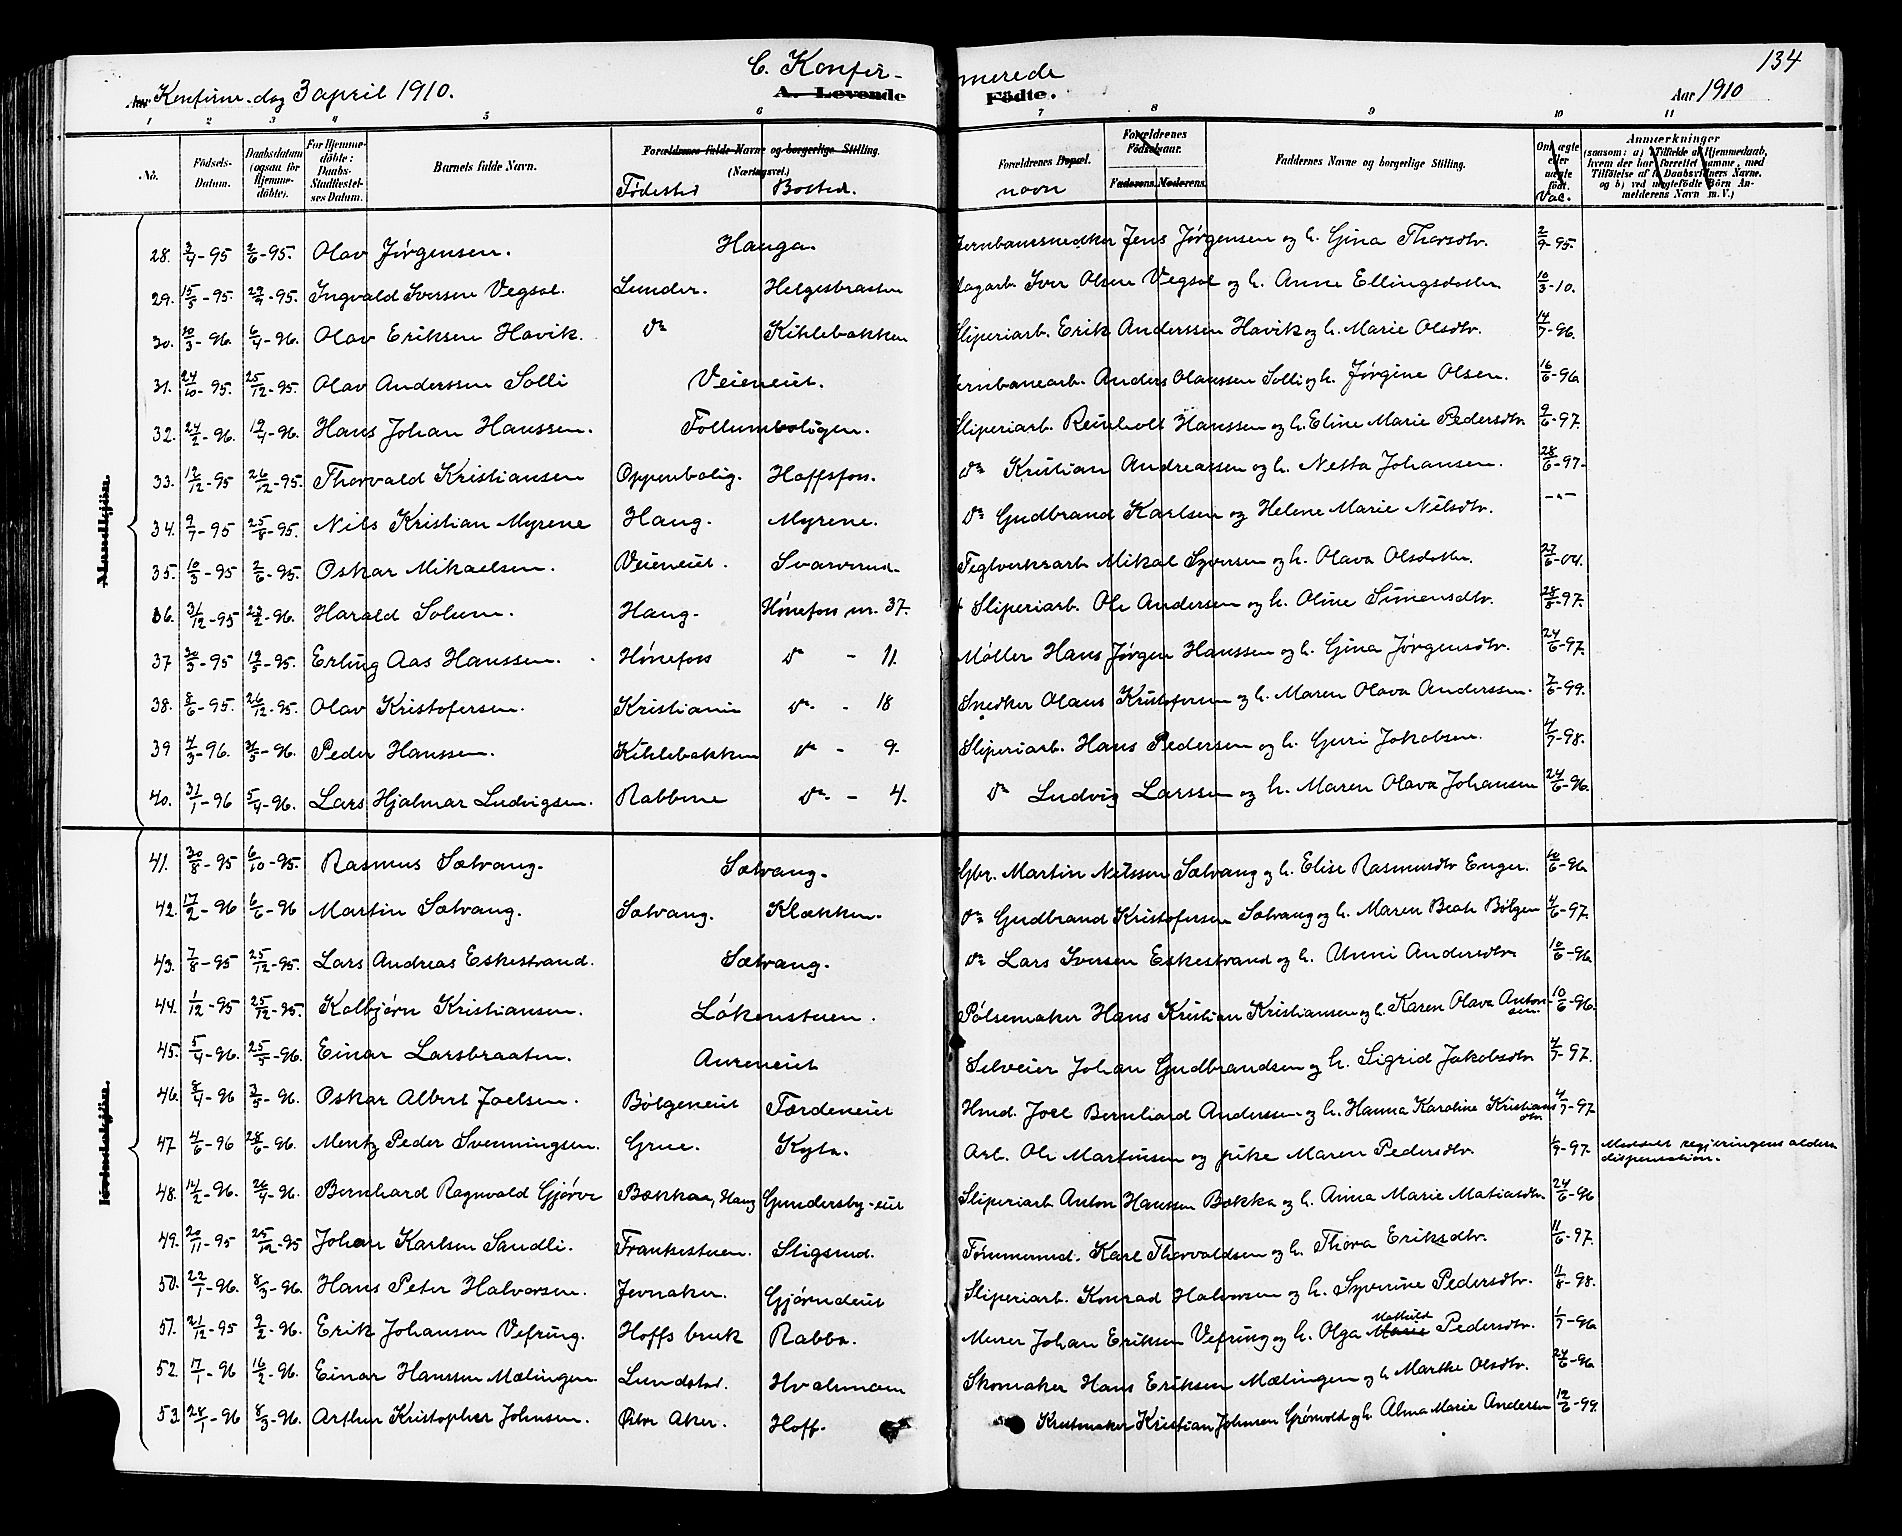 134
C. Konfir- merede
Konfirm. dag 3 april 1910.
A. Levende Fødte.
Aar 1910
1 2 3 4 5 6 7 8 9 10 11
No. Födsels-Datum. Daabsdatum (ogsaa for Hjemme-döbte). For Hjemme-döbte: Daabs-Stadfæstelses Datum. Barnets fulde Navn. Forældrenes fulde Navne og borgerlige Stilling. (Næringsvei.) Forældrenes Bopæl. Forældrenes Födselsaar. Faderens. Moderens. Faddernes Navne og borgerlige Stilling. Om ægte eller uægte födt. Anmærkninger
Fødested Bosted. navn Vac.
28. Olav Jørgensen. Hauga. Jens Jørgensen og h. Gina Thorsdtr. 2/9-95.
29. 15/3-95. Ingvald Iversen Vegsal. Lunder. Helgesbraaten Iver Olsen Vegsal og h. Anne Ellingsdatter 10/3-10.
30. 30/3-96. 6/4-96. Olav Eriksen Havik. do Kihlebakken Sliperiarb. Erik Anderssen Havik og h. Marie Olsdtr. 14/7-96.
31. 24/10-95. 25/12-95. Olav Anderssen Solli Veieneiet. Anders Olaussen Solli og h. Jørgine Olsen. 16/6-96
32. 24/2-96. 19/4-96. Hans Johan Hanssen. Follumboligen. Sliperiarb. Reinholt Hanssen og h. Eline Marie Pedersdtr. 9/6-97.
33. 12/12-95 26/12-95. Thorvald Kristiansen Oppenbolig. Hoffsfos. do Kristian Andreassen og h. Netta Johansen. 28/6-97.
34. 9/7-95 25/8-95. Nils Kristian Myrene Haug. Myrene. do Gudbrand Karlsen og Helene Marie Nilsdtr. -"-
35. 10/3-95 2/6-95. Oskar Mikaelsen. Veieneiet. Svarverud. Teglverksarb. Mikal Syversen og h. Olava Olsdatter. 27/6-04.
36. 31/12-95 23/2-96. Harald Solum. Haug. Hønefoss nr. 37. Sliperiarb. Ole Andersen og h. Oline Simensdtr. 28/8-97.
37 30/3-95 19/5-95. Erling Aas Hanssen. Hønefoss do - 11. Møller Hans Jørgen Hanssen og h. Gina Jørgensdtr. 24/6-97.
38. 8/6-95. 26/12-95. Olav Kristofersen. Kristiania do - 18 Snedker Olaus Kristofersen og h. Maren Olava Anderssen. 7/6-99.
39 4/3-96. 31/5-96. Peder Hanssen. Kihlebakken do - 9. Sliperiarb. Hans Pedersen og h. Guri Jakobsen. 4/7-98.
40. 31/1-96 5/4-96. Lars Hjalmar Ludvigsen. Rabbene do - 4. do Ludvig Larssen og h. Maren Olava Johansen 24/6-96.
41. 30/8-95 6/10-95. Rasmus Sætrang. Sætrang. Gbr. Martin Nilssen Sætrang og h. Elise Rasmusdtr Enger. 10/6-96
42. 17/2-96 6/6-96 Martin Sætrang. Sætrang. Klækken. do Gudbrand Kristofersen Sætrang og h. Maren Beate Bølgen 4/6-97.
43. 7/8-95 25/12-95. Lars Andreas Eskestrand. Sætrang. do Lars Iversen Eskestrand og h. Unni Andersdtr 10/6-96
44. 1/12-95 25/12-95. Kolbjørn Kristiansen. Løkenstuen. Pølsemaker Hans Kristian Kristiansen og h. Karen Olava Antonsen. 10/6-96.
45. 5/4-96. 25/5-96. Einar Larsbraaten. Aureneiet Selveier Johan Gudbrandsen og h. Sigrid Jakobsdtr 4/7-97.
46. 8/4-96 3/5-96. Oskar Albert Joelsen. Bølgeneiet Færdeneiet Hmd. Joel Bernhard Anderssen og h. Hanna Karoline Kristiansdtr 4/7-97
47 4/6-96 28/6-96. Mentz Peder Svenningsen. Grue. Kyta. Arb. Ole Martinsen og pike Maren Pedersdtr. 1/9-97. Meddelt regjeringens alders dispensation.
48. 14/2-96. 26/4-96. Bernhard Ragnvald Gjørve Bækkaa, Haug Gundersby-eiet Sliperiarb Anton Hanssen Bækka og h. Anna Marie Matiasdtr 24/6-96
49. 20/11-95 25/12-95 Johan Karlsen Sandli. Frankestuen. Stigsrud. Tømmermd. Karl Thorvaldsen og h. Thora Eriksdtr. 11/6-97.
50. 22/1-96. 8/3-96. Hans Peter Halvorsen. Jevnaker. Gjørndeiet Sliperiarb. Konrad Halvorsen og h. Syverine Pedersdtr. 11/8-98.
51. 21/12-95 9/2-96. Erik Johansen Vefring. Hoffs bruk Rabba. Murer Johan Eriksen Vefring og h. Olga Mathilde Marie Pedersdtr. 1/7-96
52. 17/1-96 16/2-96. Einar Hanssen Mælingen. Lundstad. Hvalsmoen Skomaker Hans Eriksen Mælingen og h Marthe Olsdtr. 24/6-96
53. 28/1-96 8/3-96. Arthur Kristopher Johnsen. Østre Aker. Hoff. Kristian Johnsen Grønvold og h. Alma Marie Andersen 12/6-99.
Mandkjön.
Kvindekjön.